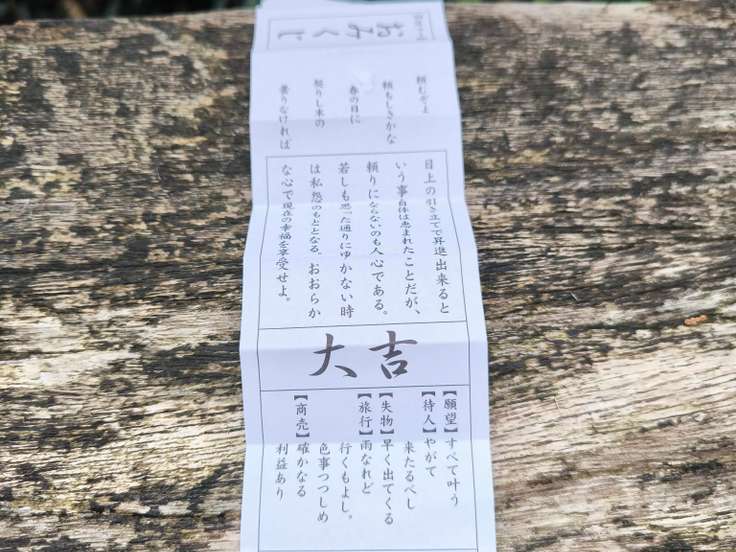 おみくじ
頼むぞよ
頼もしきかな
春の日に
契りし末の
曇りなければ
目上の引き立てで昇進出来ると
いう事自体は恵まれたことだが、
頼りにならないのも人心である。
若しも思った通りにゆかない時
は私怨のもととなる。おおらか
な心で現在の幸福を享受せよ。
大吉
【願望】すべて叶う
【待人】やがて
来たるべし
【失物】早く出てくる
【旅行】雨なれど
行くもよし。
色事つつしめ
【商売】確かなる
利益あり